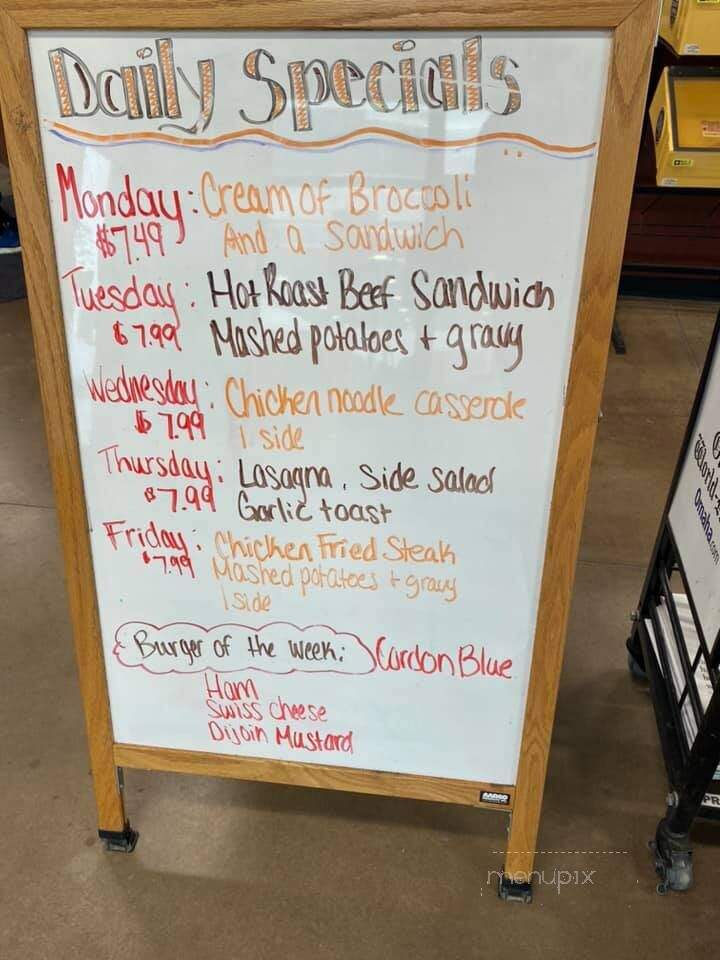 Daily Specials
Monday: Cream of Broccoli
$7.49 And a Sandwich
Tuesday: Hot Roast Beef Sandwich
$7.99 Mashed potatoes + gravy
Wednesday: Chicken noodle casserole
$7.99 1 side
Thursday: Lasagna, Side Salad
$7.99 Garlic toast
Friday: Chicken Fried Steak
$7.99 Mashed potatoes + gravy
1 side
Burger of the week: Cordon Blue
Ham
Swiss cheese
Dijoin Mustard
World
Omaha.com
menupix